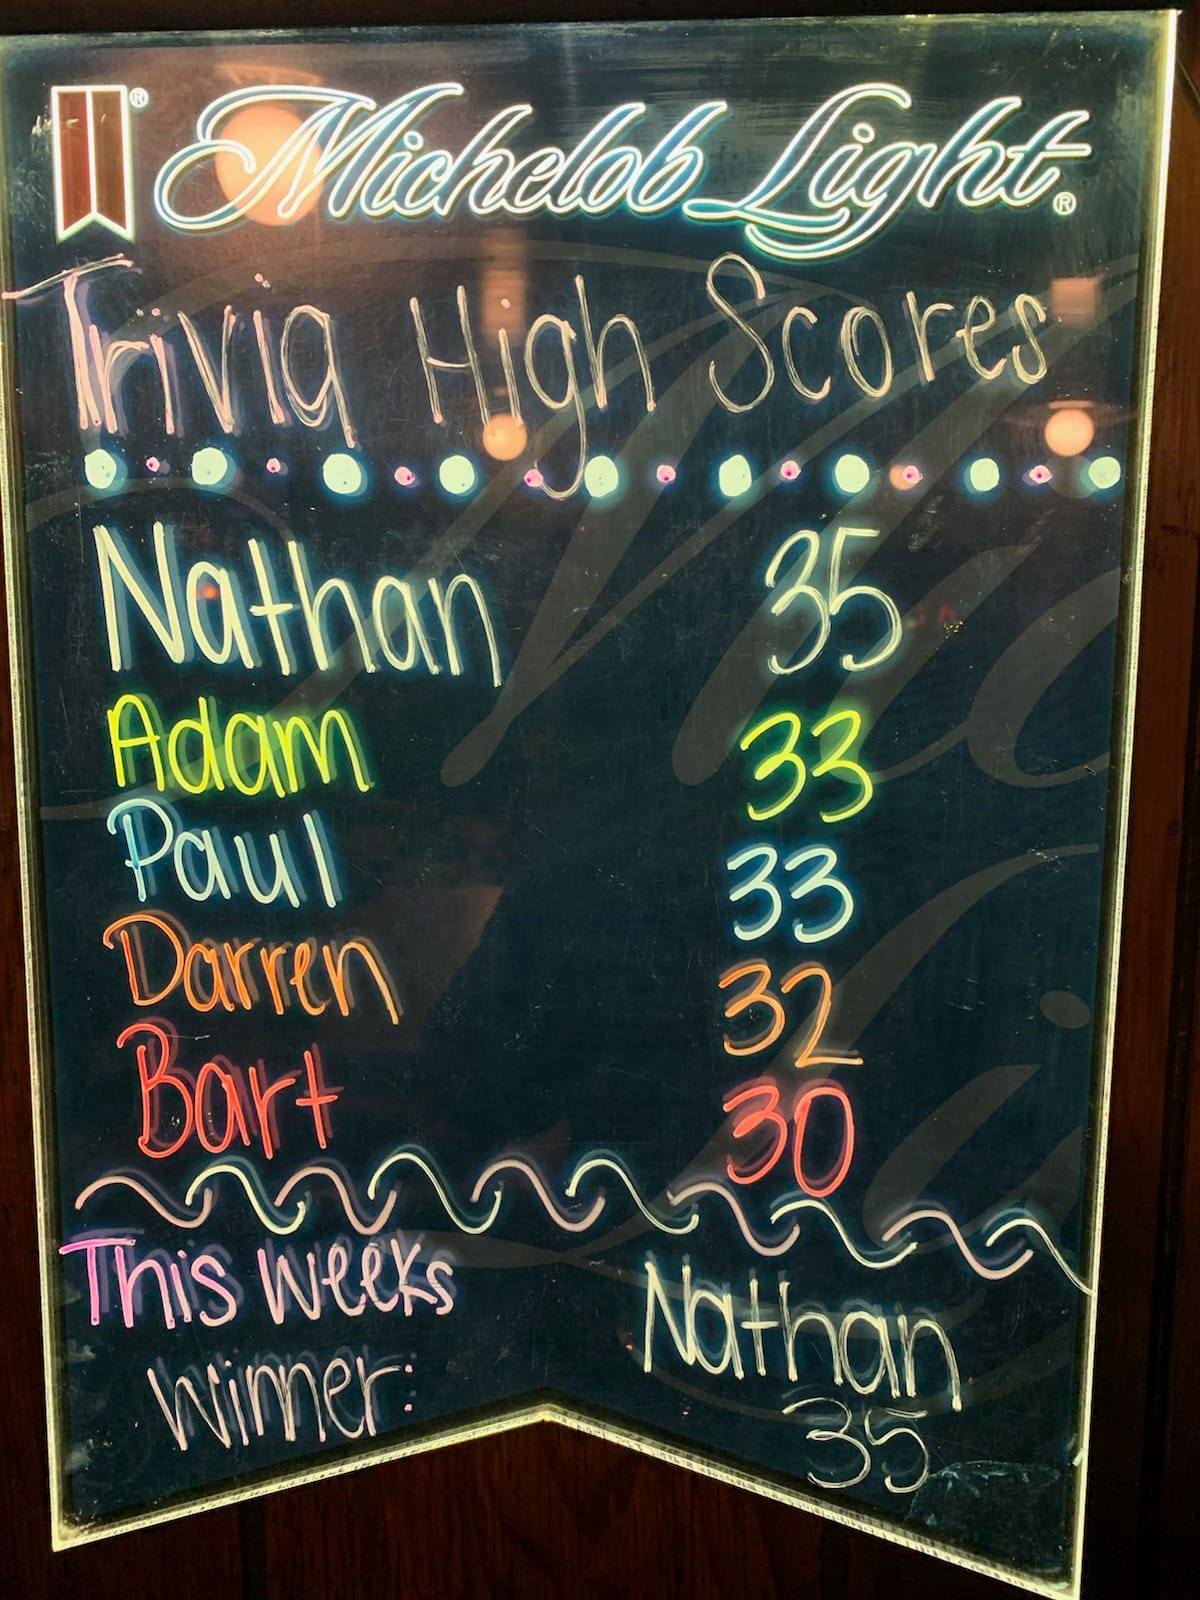 ® Michelob Light®
Trivia High Scores
Nathan 35
Adam 33
Paul 33
Darren 32
Bart 30
This Weeks Nathan
Winner: 35